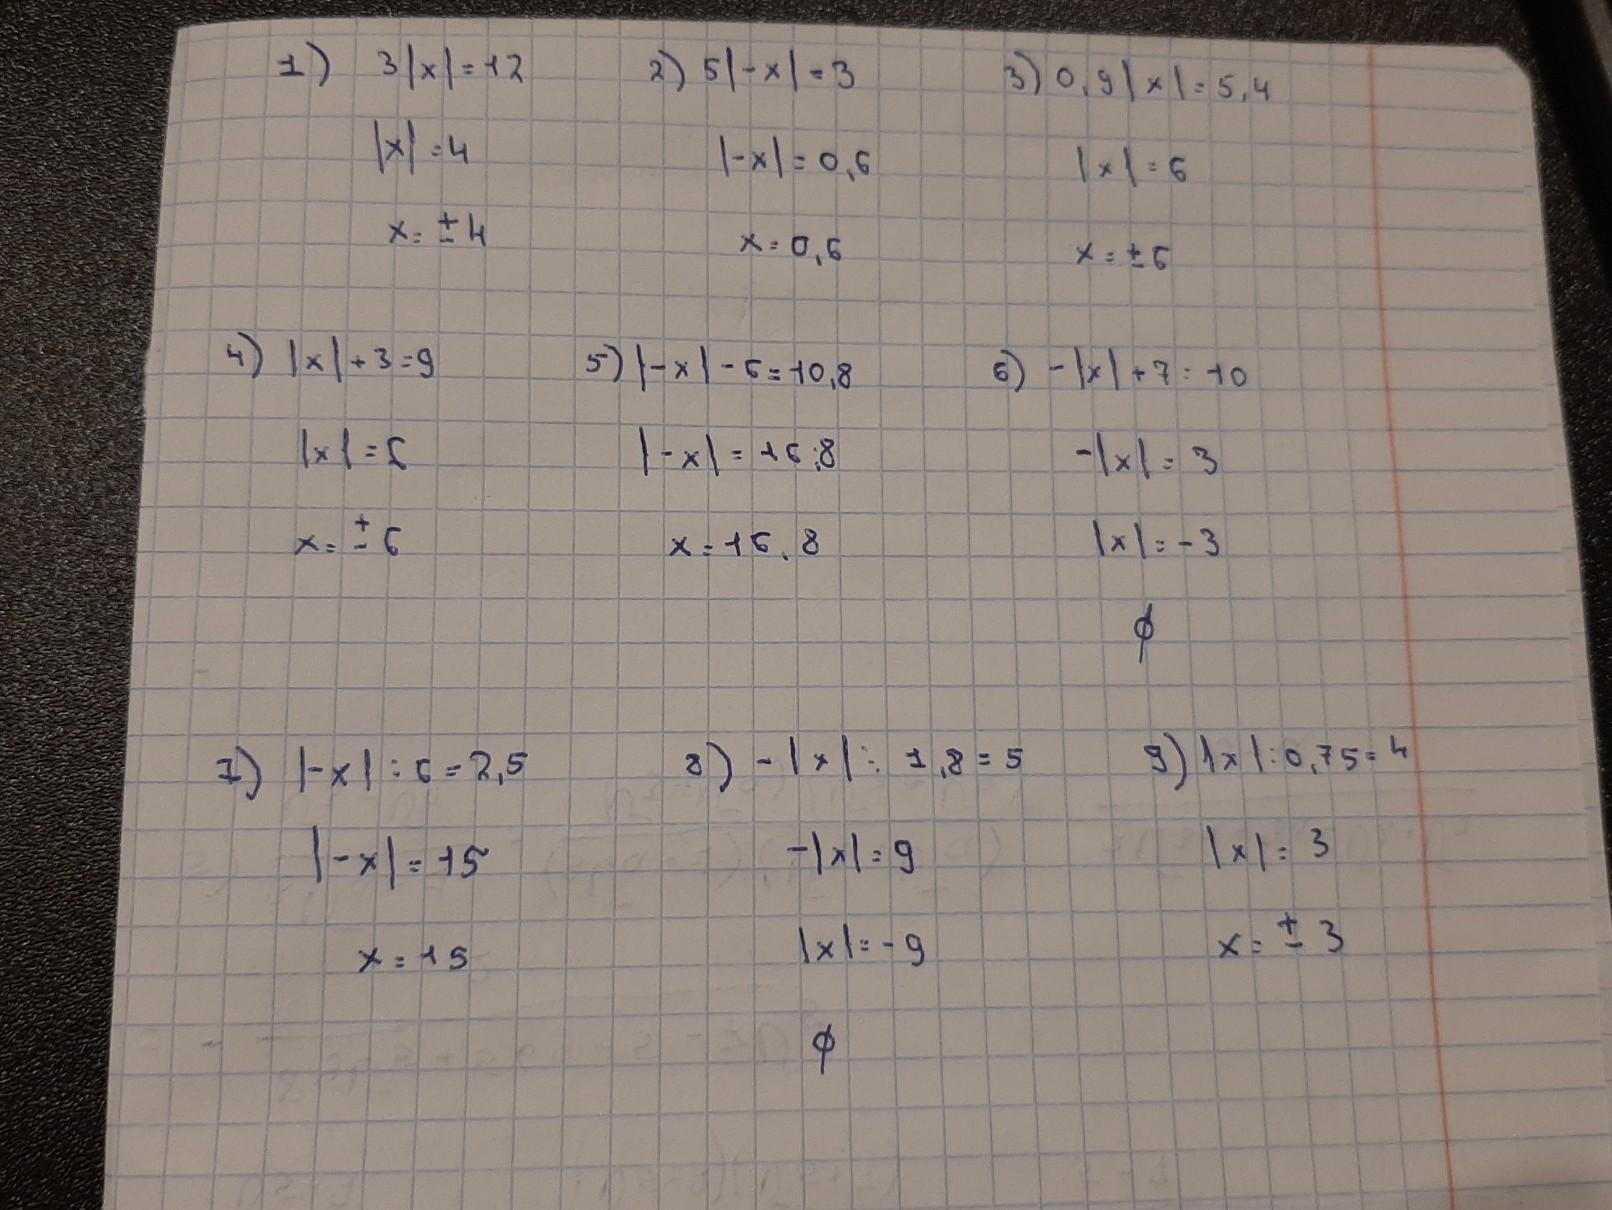 1) 3|x|=12
|x|=4
x=±4
2) 5|-x|=3
|-x|=0,6
x=0,6
3) 0,9|x|=5,4
|x|=6
x=±6
4) |x|+3=9
|x|=6
x=±6
5) |-x|-6=10,8
|-x|=16,8
x=16,8
6) -|x|+7=10
-|x|=3
|x|=-3
∅
7) |-x|:6=2,5
|-x|=15
x=15
8) -|x|:1,8=5
-|x|=9
|x|=-9
∅
9) |x|:0,75=4
|x|=3
x=±3